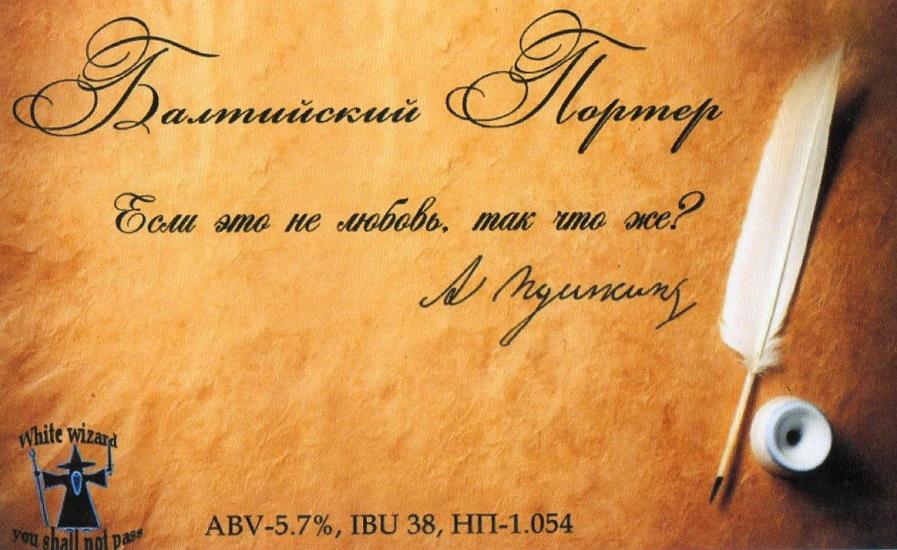 Балтийский Портер
Если это не любовь, так что же?
А Пушкинъ
White wizard
you shall not pass
ABV-5.7%, IBU 38, НП-1.054